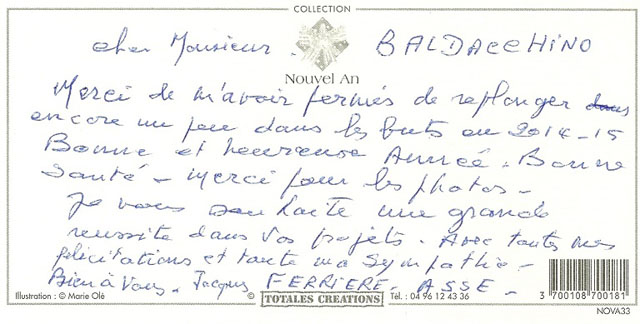 COLLECTION
Cher Monsieur. BALDACCHINO
Nouvel An
Merci de m'avoir permis de replonger
encore un peu dans les buts en 2014-15
Bonne et heureuse Année. Bonne
Santé - Merci pour les photos -
Je vous souhaite une grande
reussite dans vos projets. Avec toutes mes
félicitations et toute ma sympathie -
Bien à Vous. Jacques FERRIERE. ASSE -
Illustration : © Marie Olé
© TOTALES CREATIONS
Tél. : 04 96 12 43 36
3 700108 700181
NOVA33